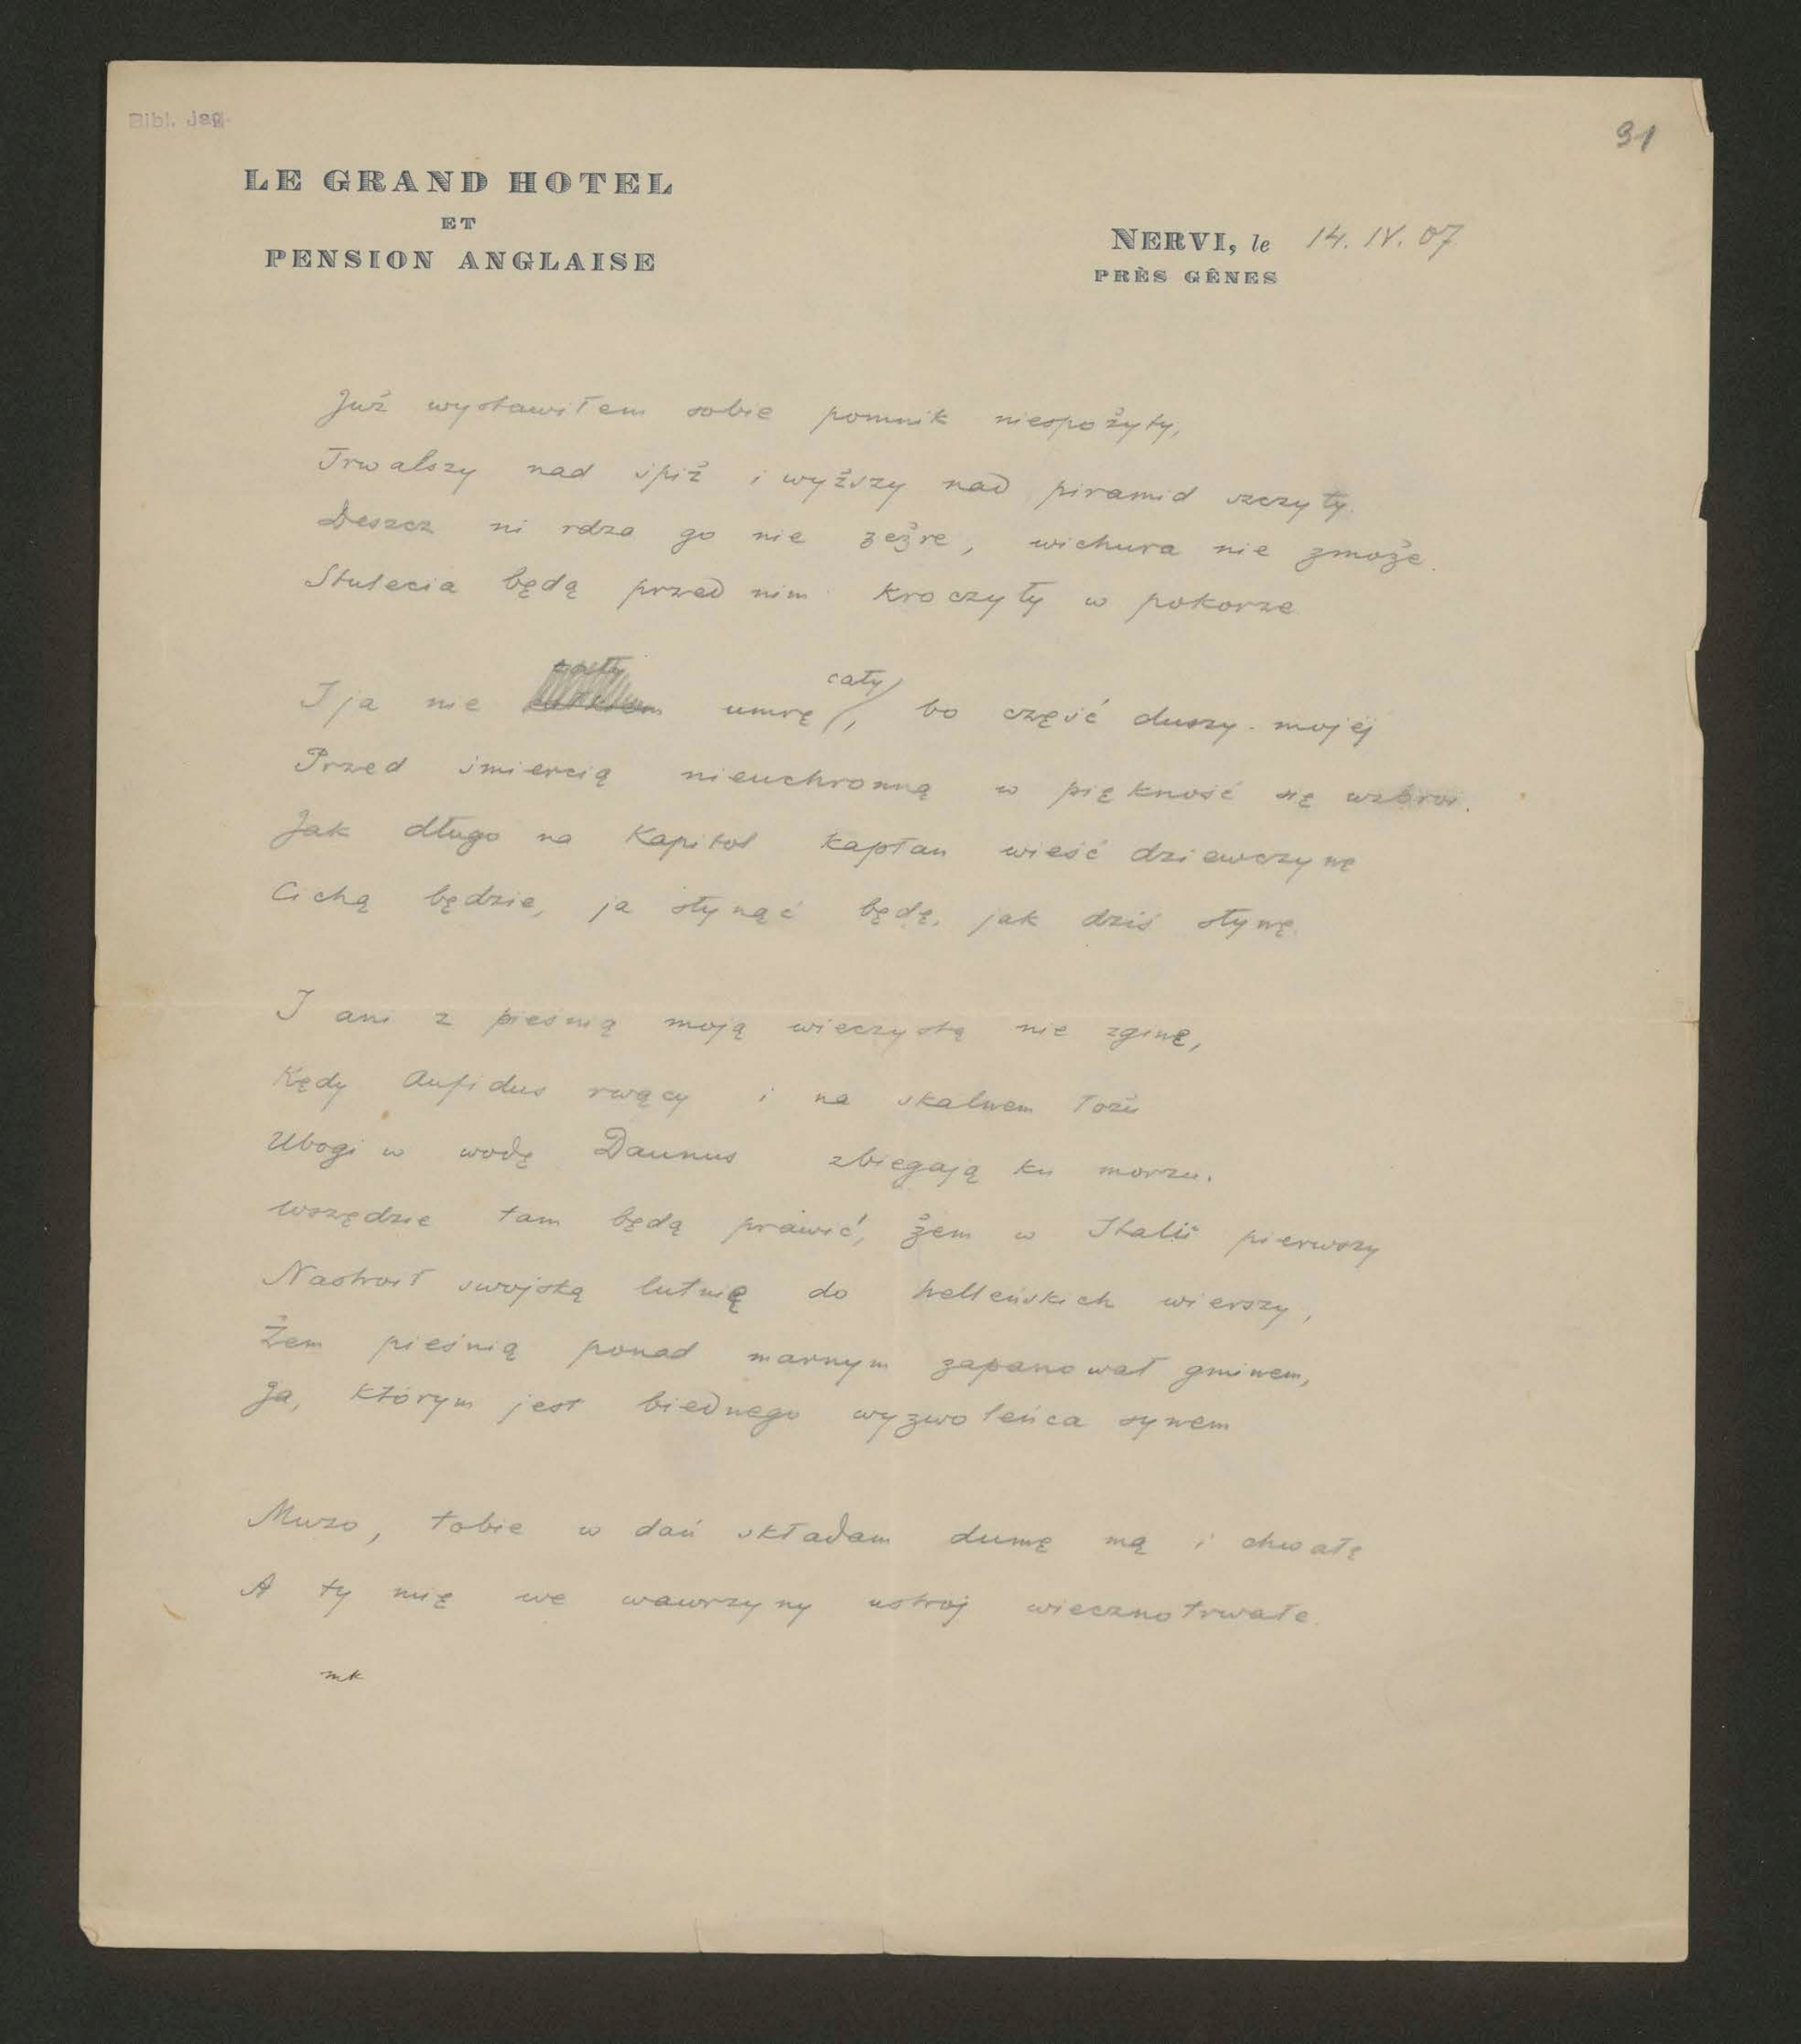 Bibl. Jag.
31
LE GRAND HOTEL
ET
PENSION ANGLAISE
NERVI, le 14. IV. 07
PRÈS GÊNES
Już wystawiłem sobie pomnik niespożyty,
Trwalszy nad śpiż i wyższy nad piramid szczyty.
Deszcz ni rdza go nie zeżre, wichura nie zmoże.
Stulecia będą przed nim kroczyły w pokorze
I ja nie umrę cały, bo część duszy mojej
Przed śmiercią nieuchronną w piękność się uzbroi.
Jak długo na Kapitol kapłan wieść dziewczynę
Cichą będzie, ja słynąć będę, jak dziś słynę.
I ani z pieśnią moją wieczystą nie zginę,
Kędy Aufidus rwący i na skalnem łożu
Ubogi w wodę Daunus zbiegają ku morzu.
Wszędzie tam będą prawić, żem w Italii pierwszy
Nastroił swojską lutnię do helleńskich wierszy,
Żem pieśnią ponad marnym zapanował gminem,
Ja, którym jest biednego wyzwoleńca synem
Muzo, tobie w dań składam dumę mą i chwałę
A ty mię we wawrzyny ustroj wiecznotrwałe.
mk